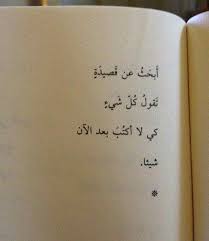 أبحَثُ عن قَصيدَةٍ
تَقولُ كُلّ شَيءٍ
كي لا أكتُبَ بعد الآن
شيئا.
*